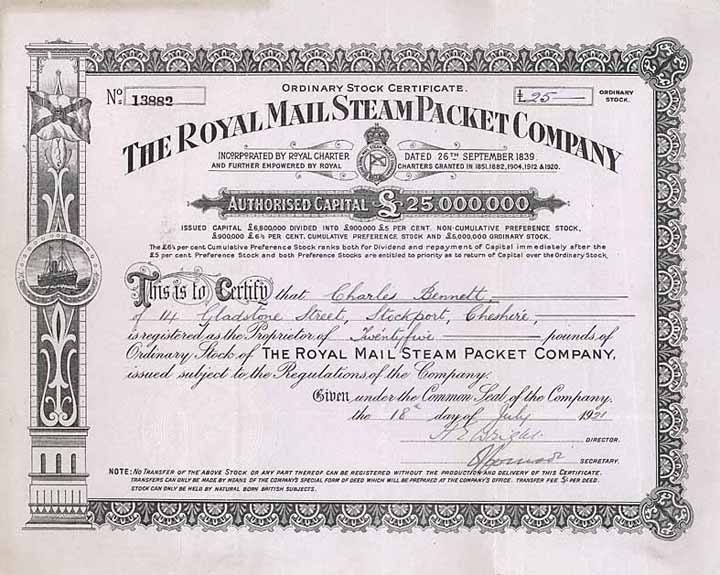 ORDINARY STOCK CERTIFICATE.
No. 13882
£ 25 ORDINARY STOCK.
THE ROYAL MAIL STEAM PACKET COMPANY
INCORPORATED BY ROYAL CHARTER DATED 26TH SEPTEMBER 1839
AND FURTHER EMPOWERED BY ROYAL CHARTERS GRANTED IN 1851, 1882, 1904, 1912 & 1920.
AUTHORISED CAPITAL £25,000,000
ISSUED CAPITAL £6,800,000 DIVIDED INTO £900,000 £5 PER CENT. NON-CUMULATIVE PREFERENCE STOCK,
£900,000 £6½ PER CENT. CUMULATIVE PREFERENCE STOCK AND £5,000,000 ORDINARY STOCK.
The £6½ per cent Cumulative Preference Stock ranks both for Dividend and repayment of Capital immediately after the
£5 per cent Preference Stock and both Preference Stocks are entitled to priority as to return of Capital over the Ordinary Stock.
This is to Certify that Charles Bennett,
of 14 Gladstone Street, Stockport, Cheshire,
is registered as the Proprietor of Twenty five pounds of
Ordinary Stock of THE ROYAL MAIL STEAM PACKET COMPANY,
issued subject to the Regulations of the Company.
Given under the Common Seal of the Company.
the 18th day of July 1921
DIRECTOR.
SECRETARY.
NOTE: NO TRANSFER OF THE ABOVE STOCK OR ANY PART THEREOF CAN BE REGISTERED WITHOUT THE PRODUCTION AND DELIVERY OF THIS CERTIFICATE.
TRANSFERS CAN ONLY BE MADE BY MEANS OF THE COMPANY'S SPECIAL FORM OF DEED WHICH WILL BE PREPARED AT THE COMPANY'S OFFICE. TRANSFER FEE 5/- PER DEED.
STOCK CAN ONLY BE HELD BY NATURAL BORN BRITISH SUBJECTS.